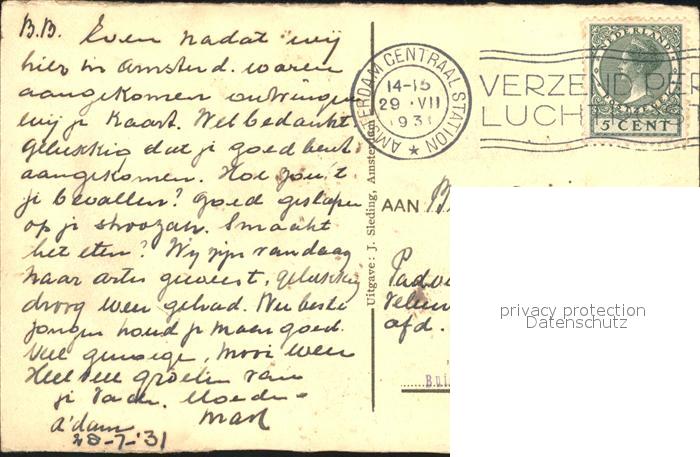 B.B. Even nadat wij
hier in Amsterd. waren
aangekomen ontvingen
wij je kaart. Wel bedankt.
gelukkig dat je goed bent
aangekomen. Hoe zou 't
je bevallen? Goed geslapen
op je stroozak. Smaakt
het eten? Wij zijn vandaag
naar artis geweest, gelukkig
droog weer gehad. Nu beste
jongen houd je maar goed.
Veel genoegen, mooi weer
Heel veel groeten van
je Vader. Moeder
A'dam
28-7-'31
Uitgave: J. Sleding, Amsterdam
AMSTERDAM CENTRAAL STATION
14-15
29 VII
1931
VERZEND PER
LUCH
NEDERLAND
5 CENT
AAN
Padv
afd.
privacy protection
Datenschutz